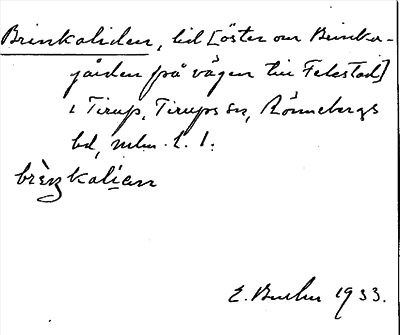 Brinkaliden, lid [öster om Brinka-
gården på vägen till Felestad]
i Tirup, Tirups sn, Rönnebergs
hd, mlm. l. 1:
brèŋkalían
E. 1933.